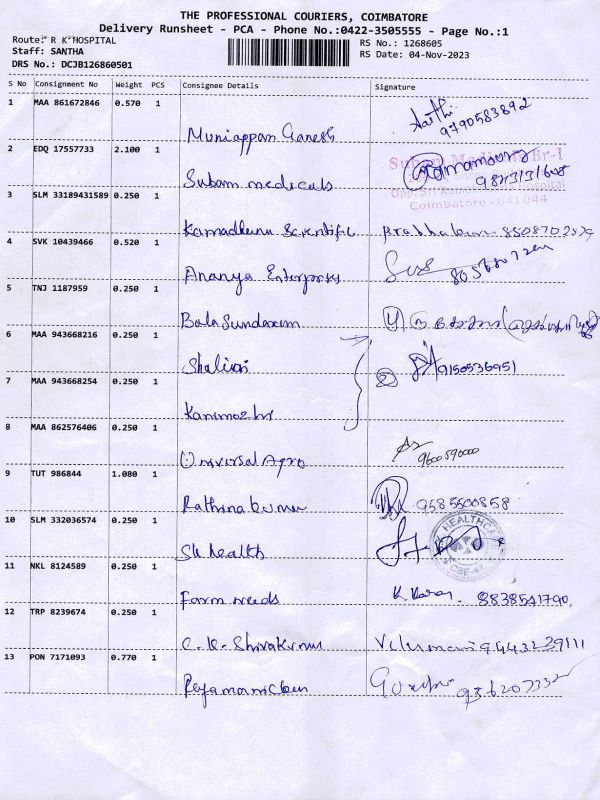 THE PROFESSIONAL COURIERS, COIMBATORE
Delivery Runsheet - PCA - Phone No.:0422-3505555 - Page No.:1
Route: R K HOSPITAL
Staff: SANTHA
DRS No.: DCJB126860501
RS No.: 1268605
RS Date: 04-Nov-2023
S No Consignment No Weight PCS Consignee Details Signature
1 MAA 861672846 0.570 1
Muniappan Ganesh 9790583892
2 EDQ 17557733 2.100 1
Subam medicals
Coimbatore - 641044
3 SLM 33189431589 0.250 1
Kamadhenu Scientific
4 SVK 10439466 0.520 1
Ananya Enterprises
5 TNJ 1187959 0.250 1
Bala Sundaram
6 MAA 943668216 0.250 1
Shalini 9150536951
7 MAA 943668254 0.250 1
Kanimozhi
8 MAA 862576406 0.250 1
Universal Agro 9600590000
9 TUT 986844 1.080 1
Rathina kumar 9585500858
10 SLM 332036574 0.250 1
Sk health
HEALTHCARE
11 NKL 8124589 0.250 1
Farm needs 8838541790
12 TRP 8239674 0.250 1
C. K. Shivakumar
13 PON 7171093 0.770 1